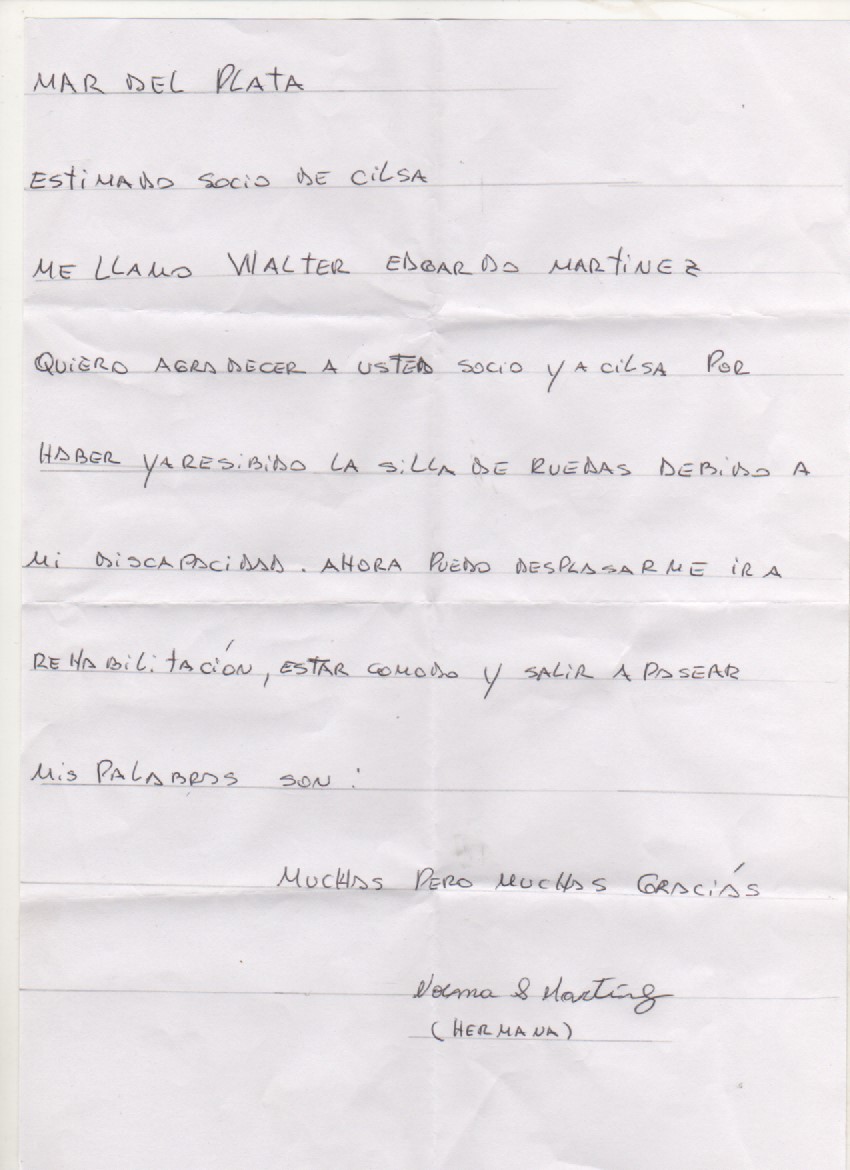 MAR DEL PLATA
ESTIMADO SOCIO DE CILSA
ME LLAMO WALTER EDGARDO MARTINEZ
QUIERO AGRADECER A USTED SOCIO Y A CILSA POR
HABER YA RESIBIDO LA SILLA DE RUEDAS DEBIDO A
MI DISCAPACIDAD. AHORA PUEDO DESPLASARME IR A
REHABILITACIÓN, ESTAR COMODO Y SALIR A PASEAR
MIS PALABRAS SON:
MUCHAS PERO MUCHAS GRACIÁS
Norma S Martinez
(HERMANA)